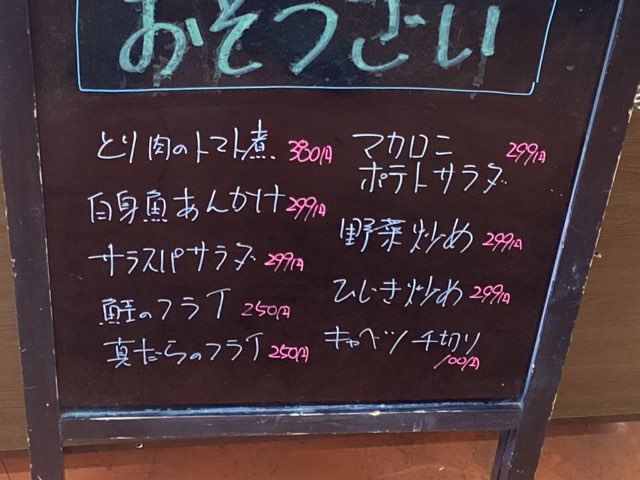 おそうざい
とり肉のトマト煮 380円
白身魚あんかけ 299円
サラスパサラダ 299円
鮭のフライ 250円
真だらのフライ 250円
マカロニ 299円
ポテトサラダ
野菜炒め 299円
ひじき炒め 299円
キャベツ千切り
100円